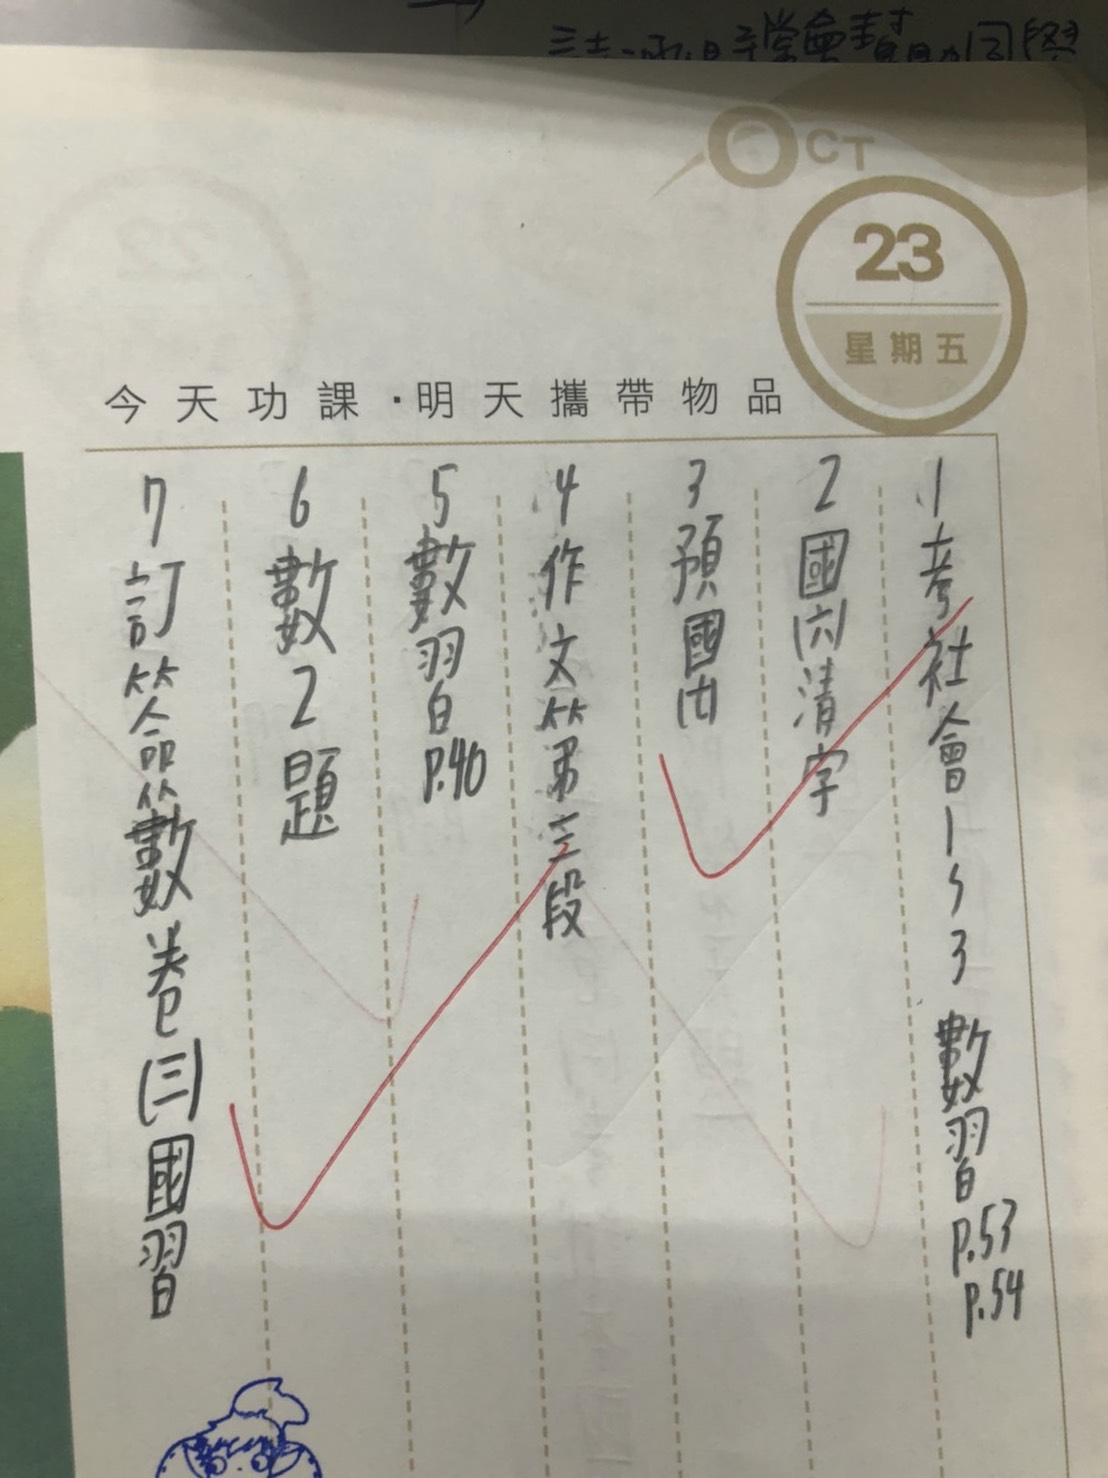 OCT
23
星期五
今天功課·明天攜帶物品
1考社會1~3 數習P.53 P.54
2國(六)清字
3預國(七)
4作文第三段
5數習P.40
6數2題
7訂簽命數卷(三)國習